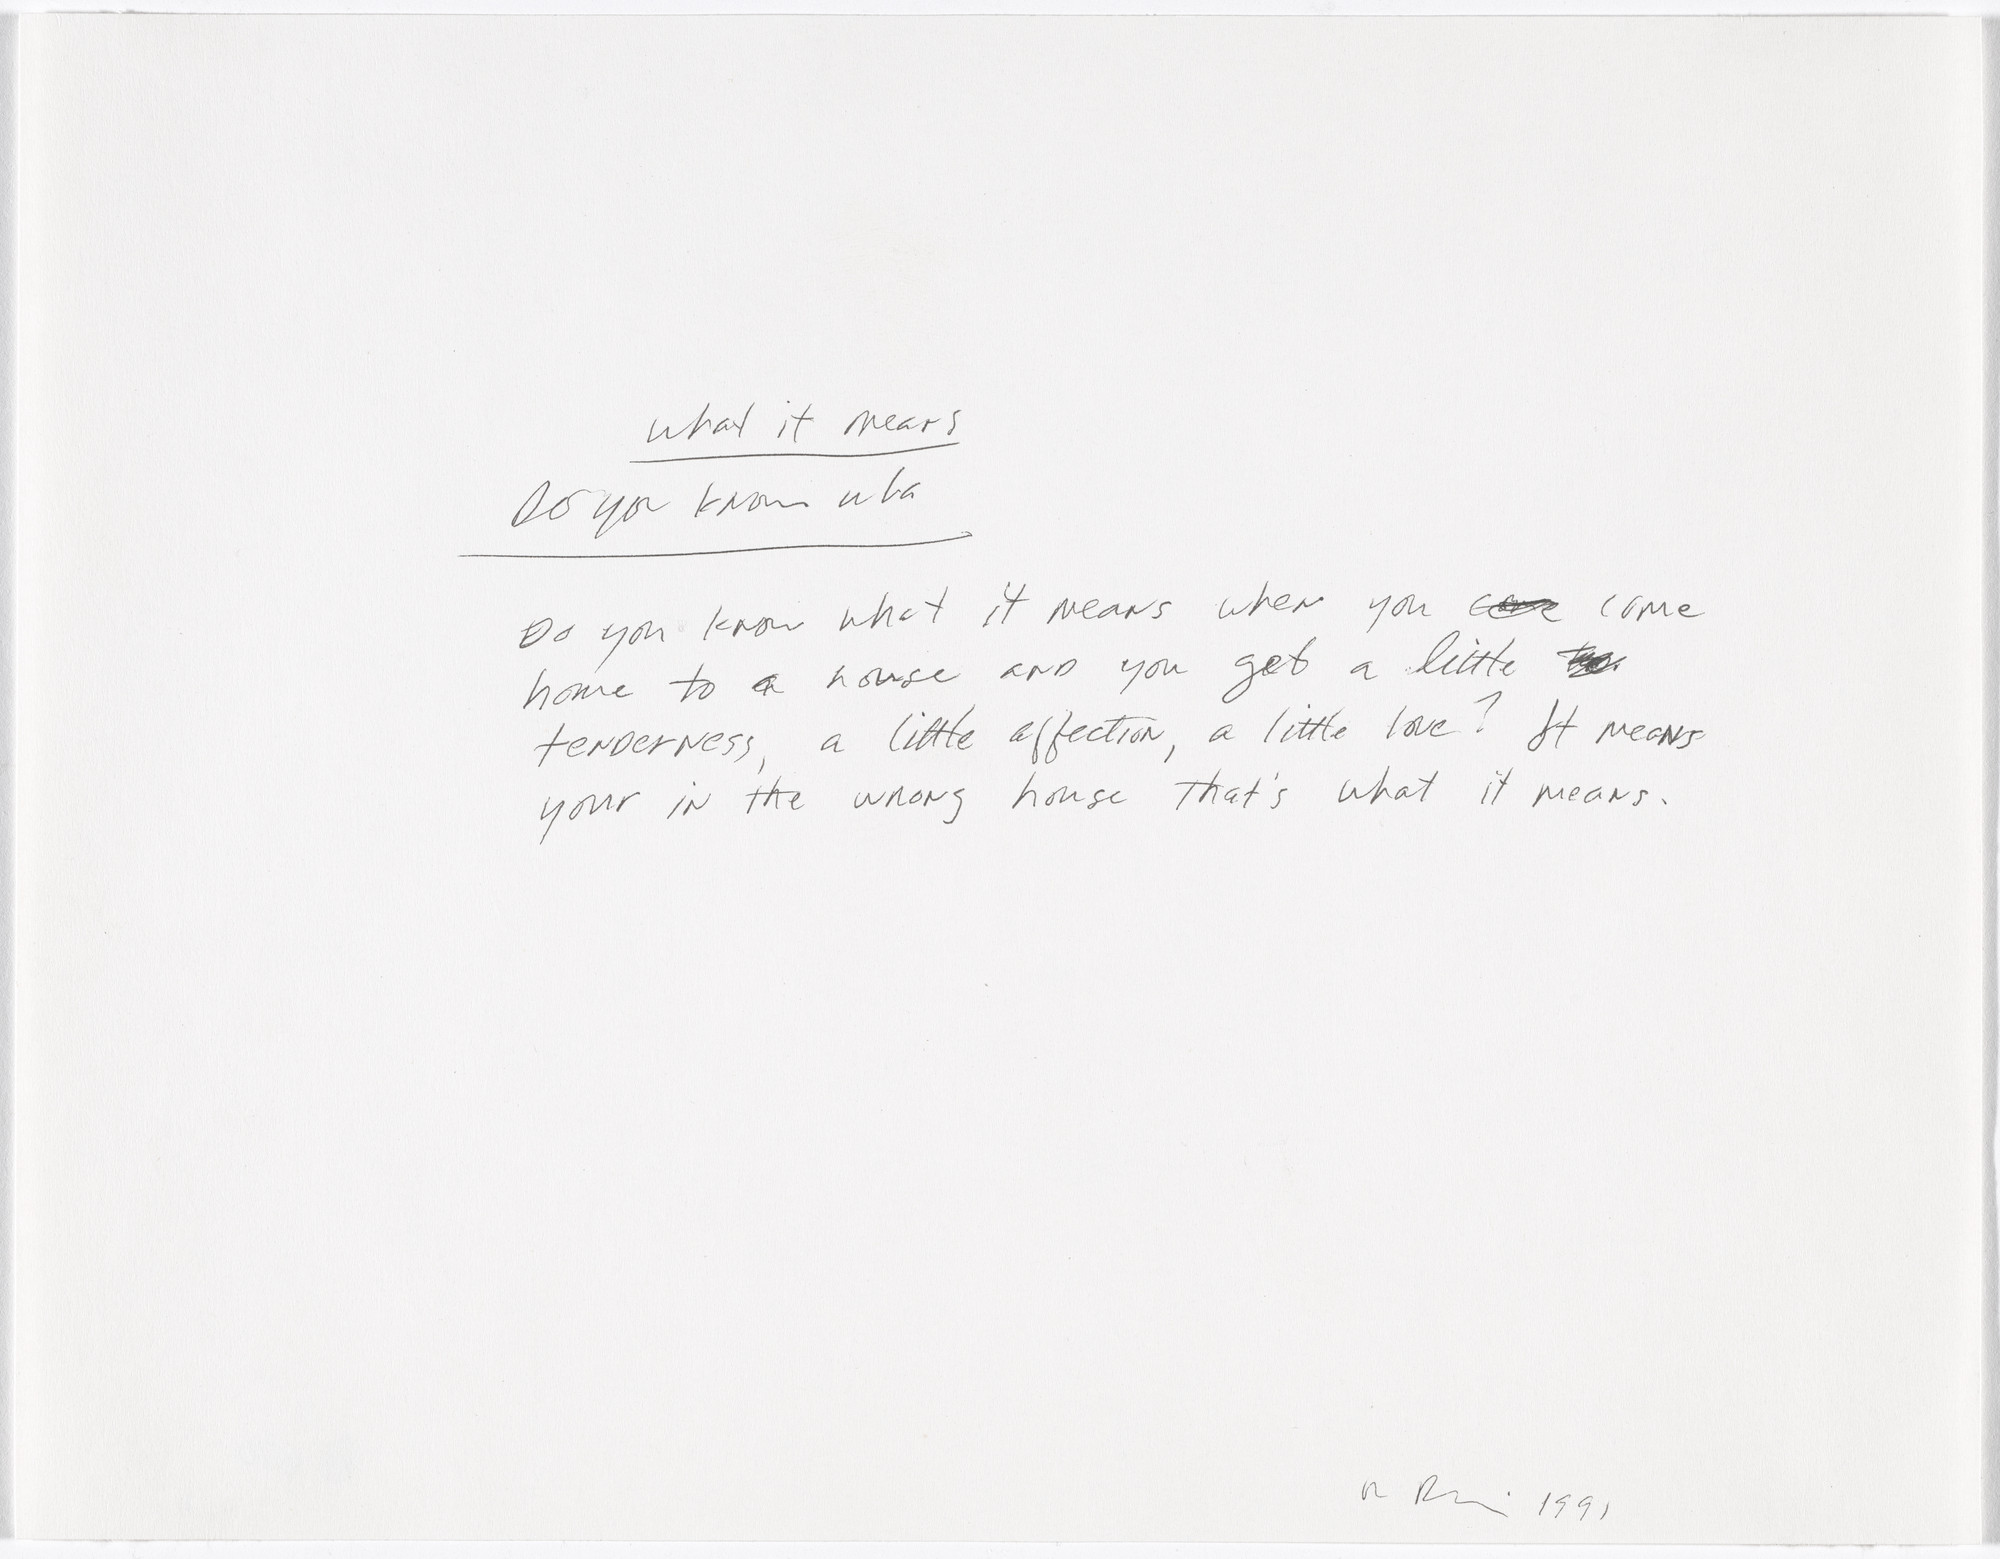 what it means
Do you know wha
Do you know what it means when you come
home to a house and you get a little
tenderness, a little affection, a little love? It means
your in the wrong house that's what it means.
1991